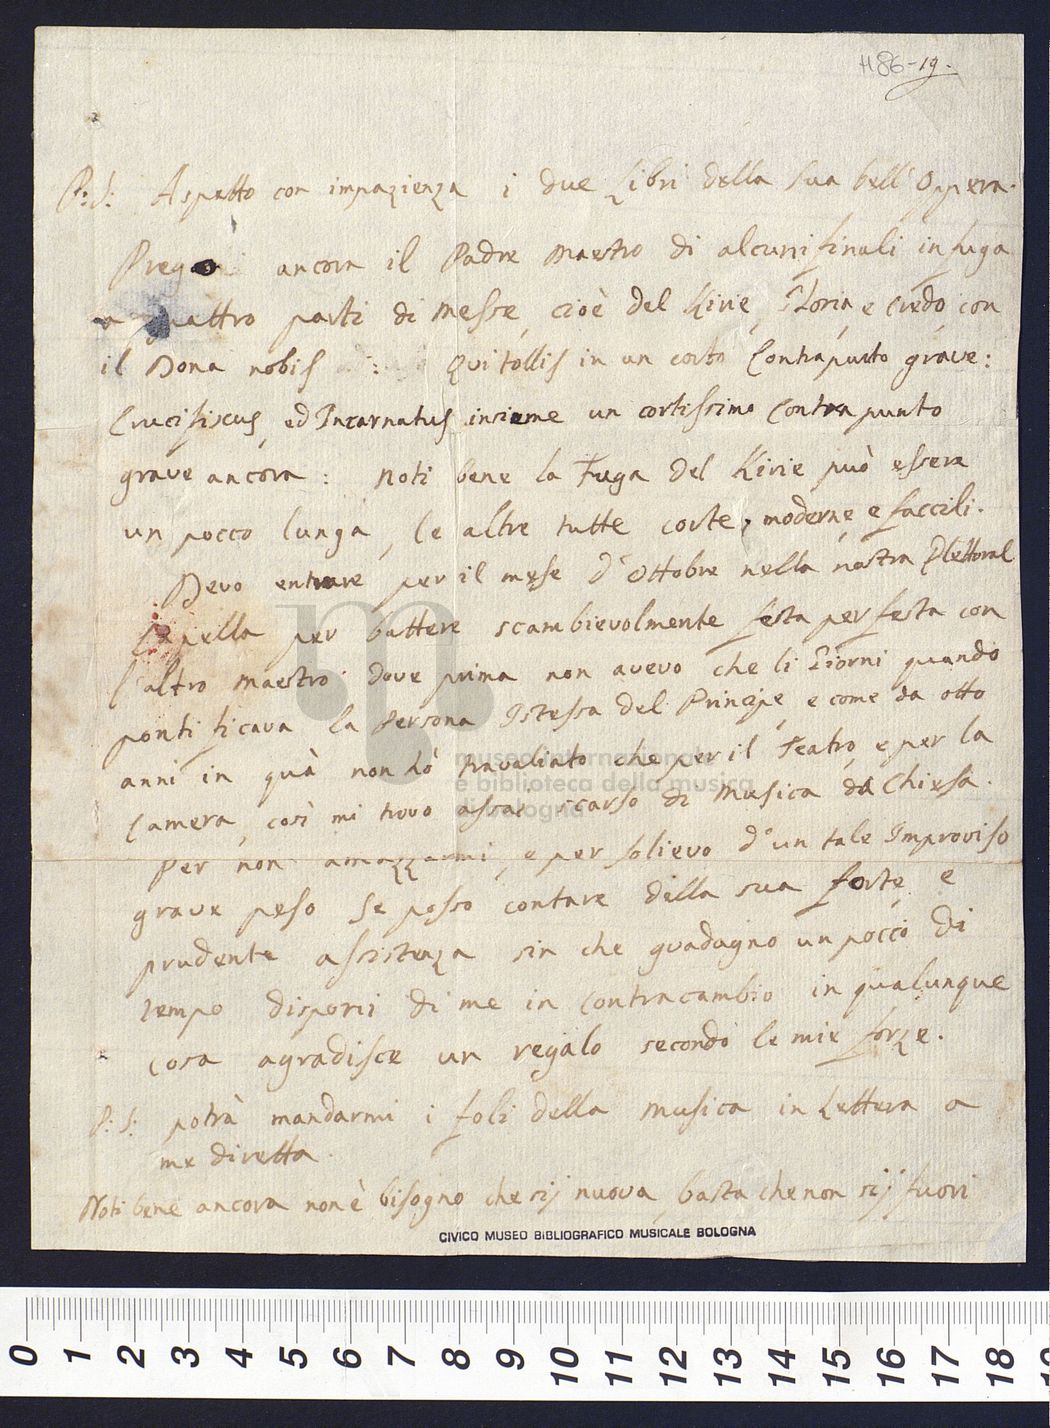 H86-19.
P: S: Aspetto con impazienza i due Libri della sua bell'Oppera.
Prego ancora il Padre Maestro di alcuni finali in fuga
a quattro parti di Messe, cioè del Kirie, Gloria, e Credo, con
il Dona nobis : Qui tollis in un corto Contrapunto grave:
Crucifiscus, ed Incarnatus insieme un cortissimo Contrapunto
grave ancora: Noti bene la Fuga del Kirie può essere
un pocco lunga, le altre tutte corte, moderne, e faccili.
Devo entrare per il mese d'Ottobre nella nostra Elettoral
Capella per battere scambievolmente festa per festa con
l'altro Maestro dove prima non avevo che li Giorni quando
pontificava la Persona Istessa del Principe, e come da otto
anni in quà non hò travaliato che per il Teatro, e per la
Camera, così mi trovo assai scarso di Musica da Chiesa.
Per non amazzarmi, e per solievo d'un tale Improviso
grave peso se posso contare della sua forte, e
prudente assistenza sin che guadagno un pocco di
tempo disponi di me in Contracambio in qualunque
cosa agradisce un regalo secondo le mie forze.
P: S: potrà mandarmi i foli della Musica in Lettera a
me diretta.
Noti bene ancora non è bisogno che sij nuova, basta che non sij fuori
CIVICO MUSEO BIBLIOGRAFICO MUSICALE BOLOGNA
museo internazionale
e biblioteca della musica
di bologna
0 1 2 3 4 5 6 7 8 9 10 11 12 13 14 15 16 17 18